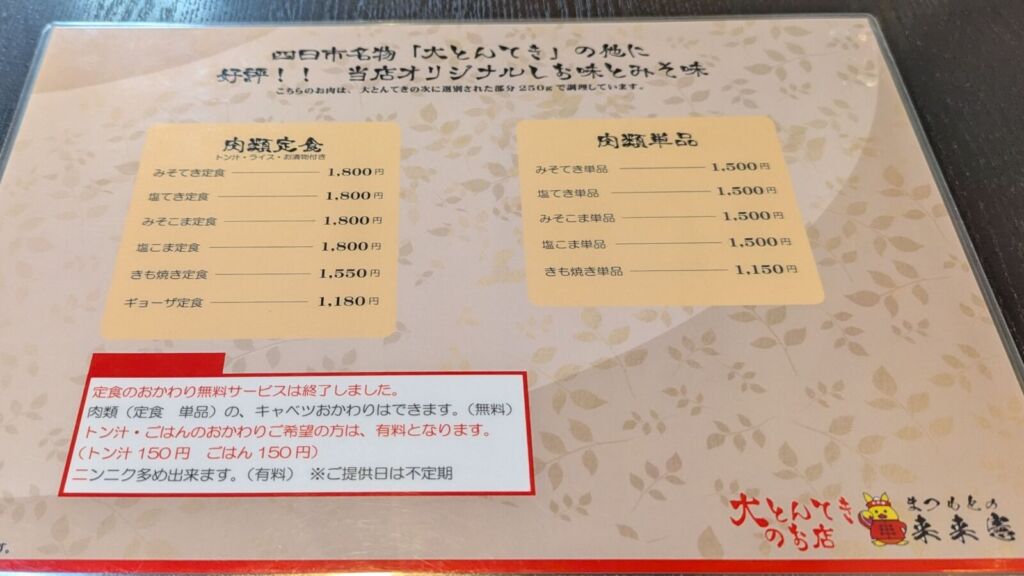 四日市名物「大とんてき」の他に
好評！！　当店オリジナルしお味とみそ味
こちらのお肉は、大とんてきの次に選別された部分250gで調理しています。
肉類定食
トン汁・ライス・お漬物付き
みそてき定食 1,800円
塩てき定食 1,800円
みそこま定食 1,800円
塩こま定食 1,800円
きも焼き定食 1,550円
ギョーザ定食 1,180円
肉類単品
みそてき単品 1,500円
塩てき単品 1,500円
みそこま単品 1,500円
塩こま単品 1,500円
きも焼き単品 1,150円
定食のおかわり無料サービスは終了しました。
肉類（定食　単品）の、キャベツおかわりはできます。（無料）
トン汁・ごはんのおかわりご希望の方は、有料となります。
（トン汁150円　ごはん150円）
ニンニク多め出来ます。（有料）　※ご提供日は不定期
す。
大とんてき
のお店
まつもとの
来来憲